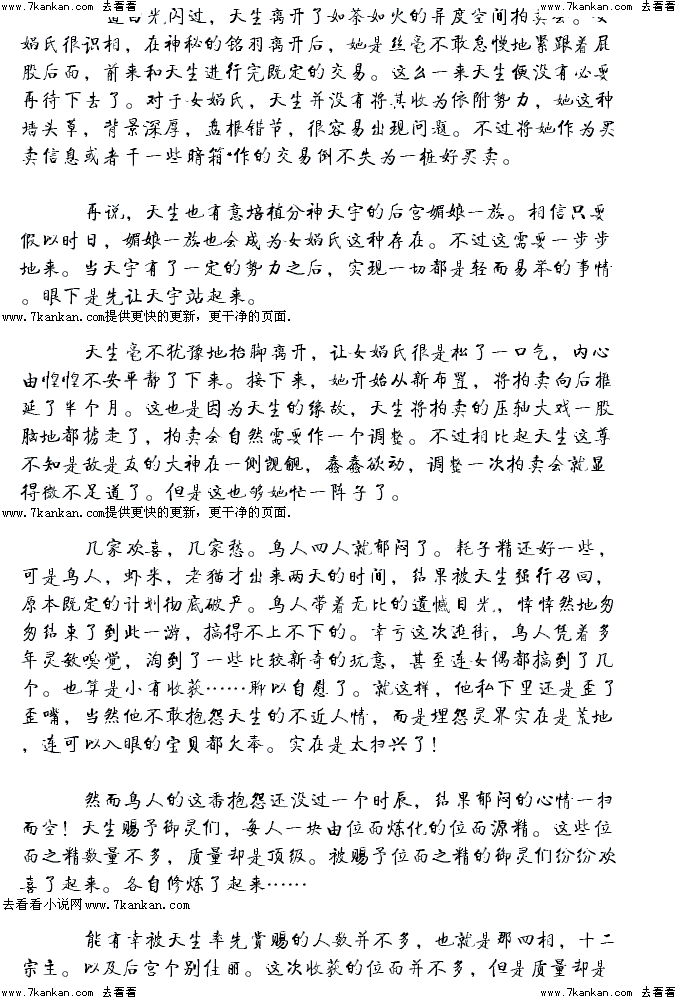 www.7kankan.com 去看看 www.7kankan.com 去看看 www.7kankan.com 去看看 www.7kankan.com 去看看
道白光闪过，天生离开了如荼如火的异度空间拍卖会。女
娲氏很识相，在神秘的铭羽离开后，她是丝毫不敢怠慢地紧跟着屁
股后面，前来和天生进行完既定的交易。这么一来天生便没有必要
再待下去了。对于女娲氏，天生并没有将其收为依附势力，她这种
墙头草，背景深厚，盘根错节，很容易出现问题。不过将她作为买
卖信息或者干一些暗箱*作的交易倒不失为一桩好买卖。
再说，天生也有意培植分神天宇的后宫媚娘一族。相信只要
假以时日，媚娘一族也会成为女娲氏这种存在。不过这需要一步步
地来。当天宇有了一定的势力之后，实现一切都是轻而易举的事情
。眼下是先让天宇站起来。
www.7kankan.com提供更快的更新，更干净的页面.
天生毫不犹豫地抬脚离开，让女娲氏很是松了一口气，内心
由惶惶不安平静了下来。接下来，她开始从新布置，将拍卖向后推
延了半个月。这也是因为天生的缘故，天生将拍卖的压轴大戏一股
脑地都掳走了，拍卖会自然需要作一个调整。不过相比起天生这尊
不知是敌是友的大神在一侧觊觎，蠢蠢欲动，调整一次拍卖会就显
得微不足道了。但是这也够她忙一阵子了。
www.7kankan.com提供更快的更新，更干净的页面.
几家欢喜，几家愁。鸟人四人就郁闷了。耗子精还好一些，
可是鸟人，虾米，老猫才出来两天的时间，结果被天生强行召回，
原本既定的计划彻底破产。鸟人带着无比的遗憾目光，悻悻然地匆
匆结束了到此一游，搞得不上不下的。幸亏这次逛街，鸟人凭着多
年灵敏嗅觉，淘到了一些比较新奇的玩意，甚至连女偶都搞到了几
个。也算是小有收获……聊以自慰了。就这样，他私下里还是歪了
歪嘴，当然他不敢抱怨天生的不近人情，而是埋怨灵界实在是荒地
，连可以入眼的宝贝都欠奉。实在是太扫兴了！
然而鸟人的这番抱怨还没过一个时辰，结果郁闷的心情一扫
而空！天生赐予御灵们，每人一块由位面炼化的位面源精。这些位
面之精数量不多，质量却是顶级。被赐予位面之精的御灵们纷纷欢
喜了起来。各自修炼了起来……
去看看小说网www.7kankan.com
能有幸被天生率先赏赐的人数并不多，也就是那四相，十二
宗主。以及后宫个别佳丽。这次收获的位面并不多，但是质量却是
www.7kankan.com 去看看 www.7kankan.com 去看看 www.7kankan.com 去看看 www.7kankan.com 去看看